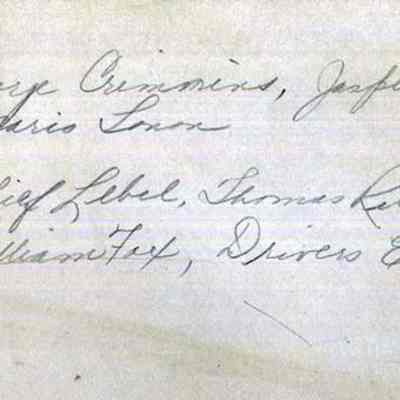 orge Crimmins, Jasp
daris Lonon
ief Lebel, Thomas
lliam Fox, Drivers E